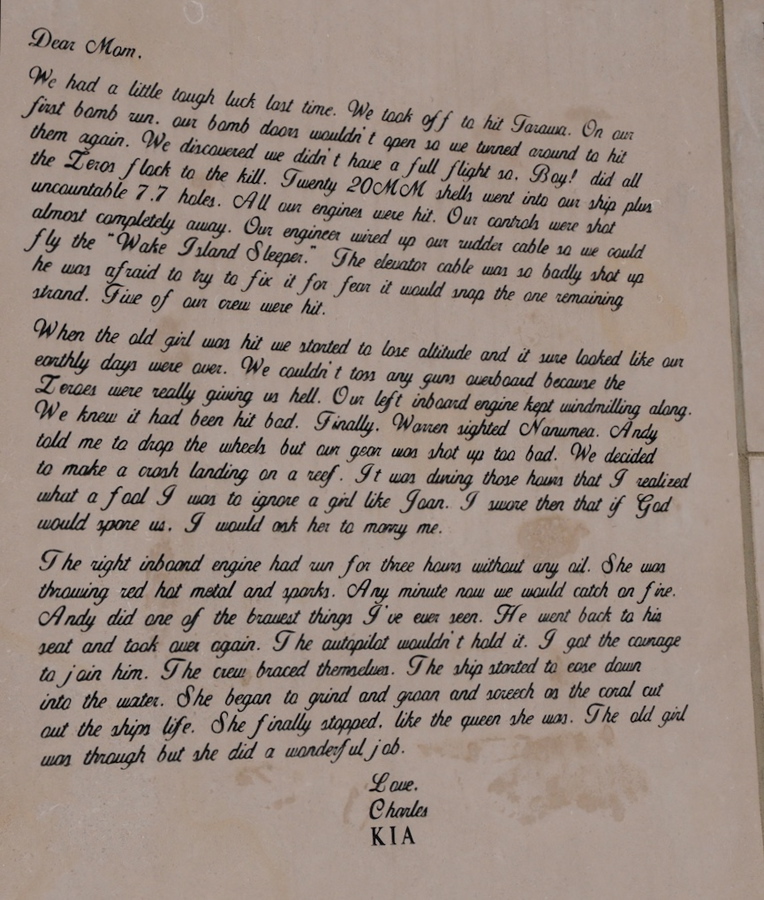 Dear Mom,
We had a little tough luck last time. We took off to hit Tarawa. On our
first bomb run, our bomb doors wouldn't open so we turned around to hit
them again. We discovered we didn't have a full flight so, Boy! did all
the Zeros flock to the kill. Twenty 20MM shells went into our ship plus
uncountable 7.7 holes. All our engines were hit. Our controls were shot
almost completely away. Our engineer wired up our rudder cable so we could
fly the "Wake Island Sleeper." The elevator cable was so badly shot up
he was afraid to try to fix it for fear it would snap the one remaining
strand. Five of our crew were hit.
When the old girl was hit we started to lose altitude and it sure looked like our
earthly days were over. We couldn't toss any guns overboard because the
Zeroes were really giving us hell. Our left inboard engine kept windmilling along.
We knew it had been hit bad. Finally, Warren sighted Nanumea. Andy
told me to drop the wheels but our gear was shot up too bad. We decided
to make a crash landing on a reef. It was during those hours that I realized
what a fool I was to ignore a girl like Joan. I swore then that if God
would spare us, I would ask her to marry me.
The right inboard engine had run for three hours without any oil. She was
throwing red hot metal and sparks. Any minute now we would catch on fire.
Andy did one of the bravest things I've ever seen. He went back to his
seat and took over again. The autopilot wouldn't hold it. I got the courage
to join him. The crew braced themselves. The ship started to ease down
into the water. She began to grind and groan and screech as the coral cut
out the ships life. She finally stopped, like the queen she was. The old girl
was through but she did a wonderful job.
Love,
Charles
KIA